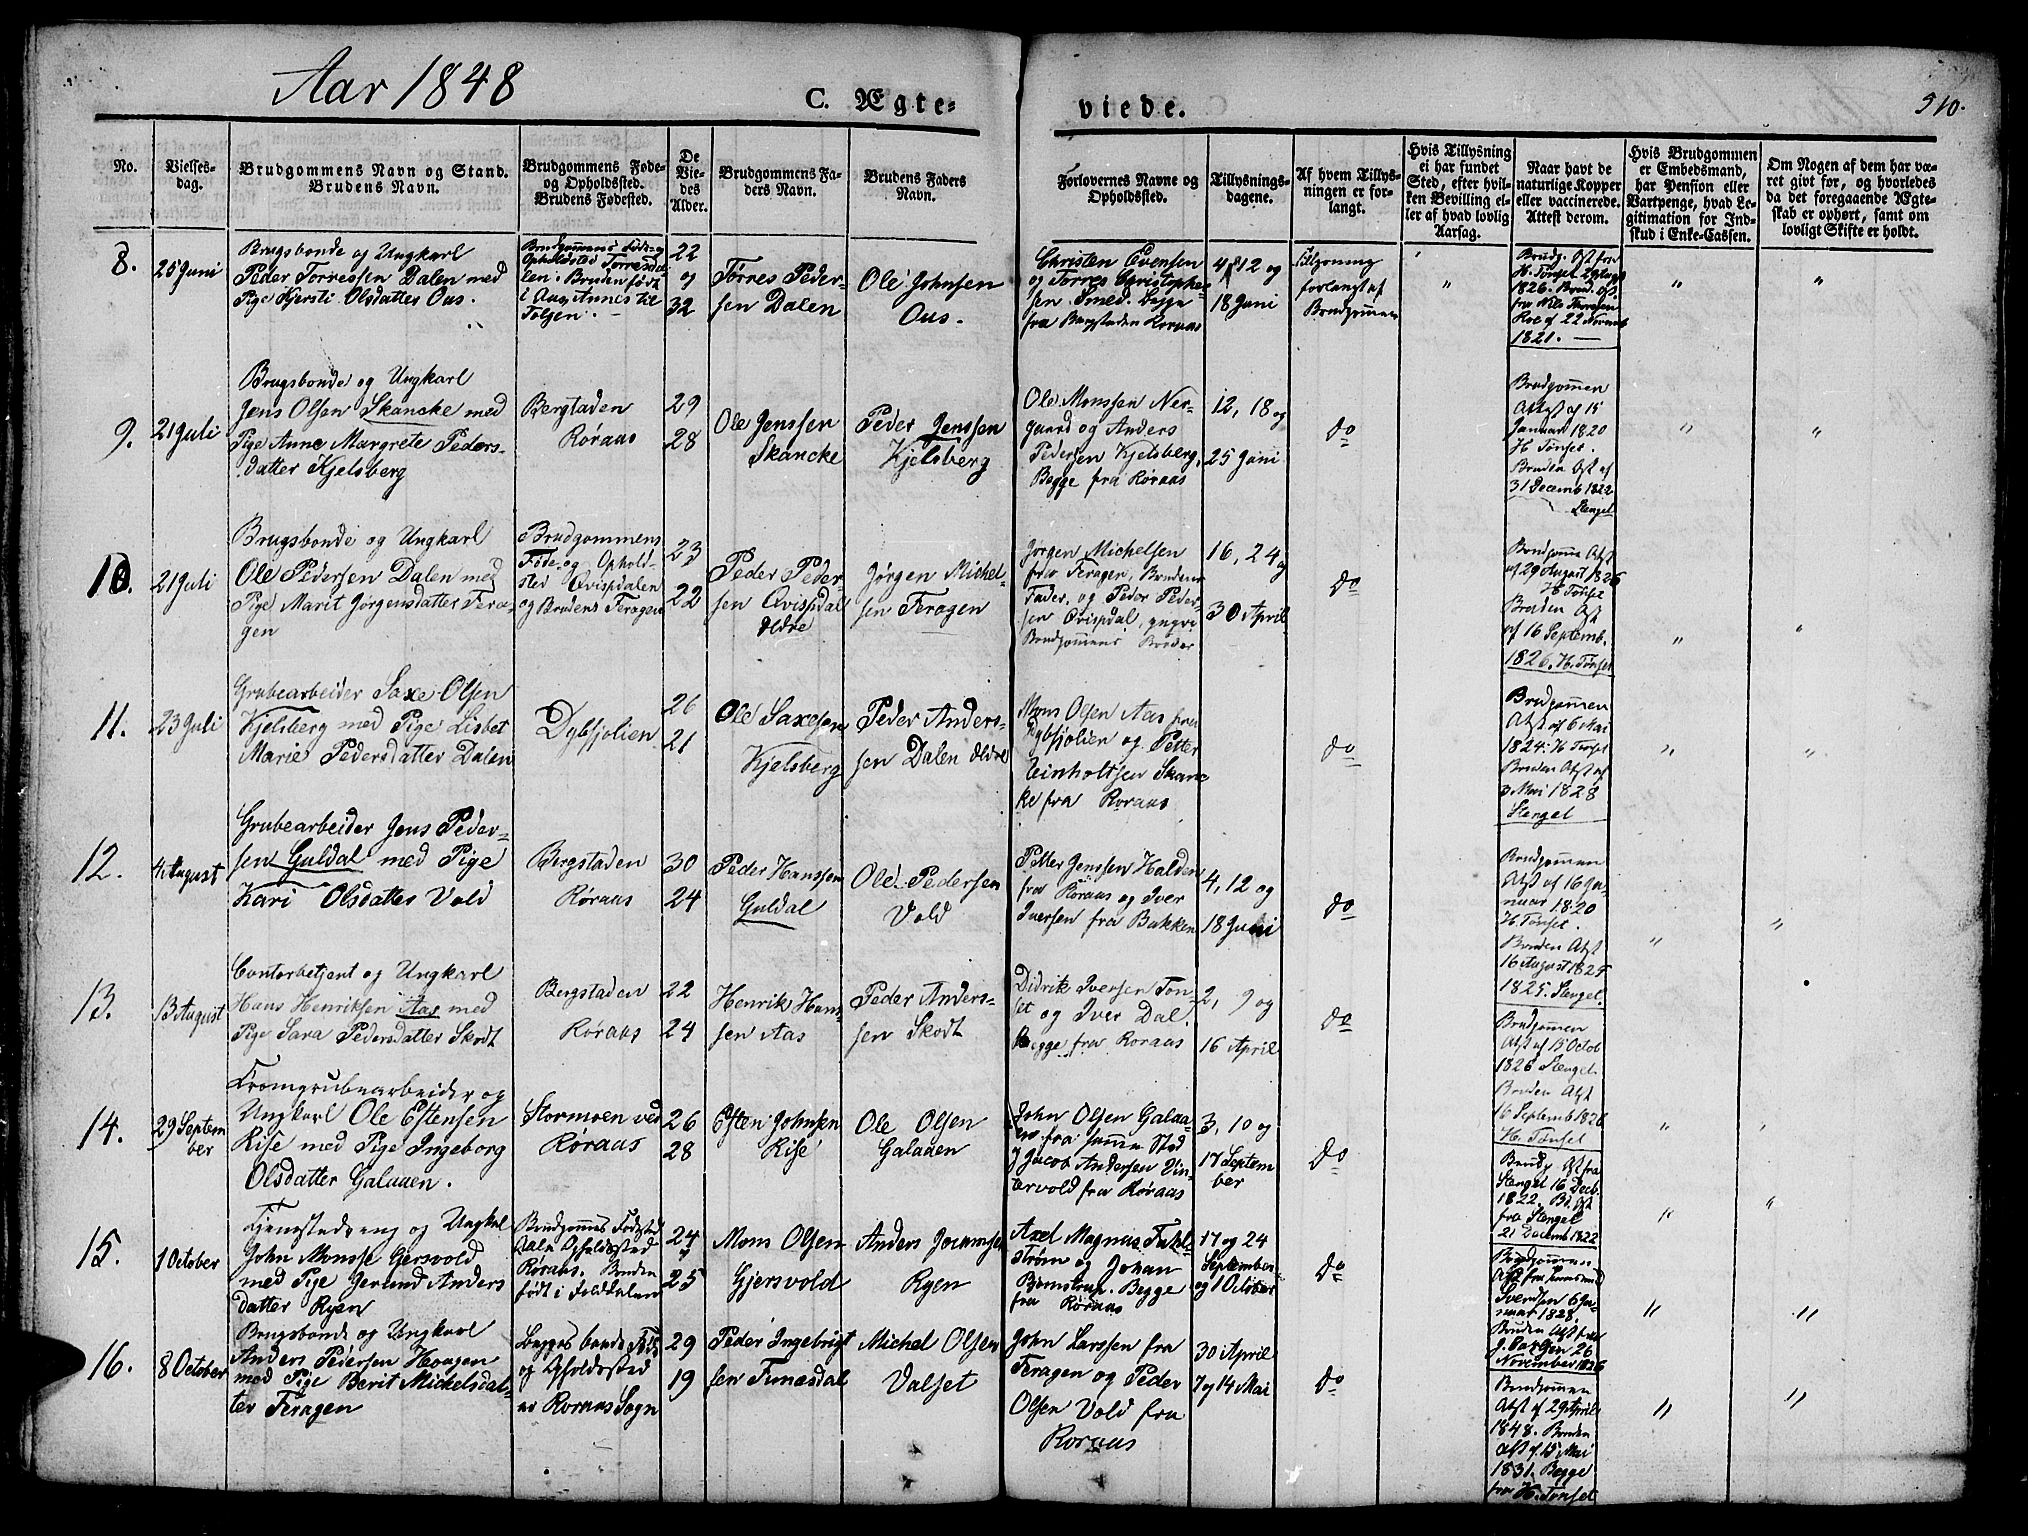 Aar 1848
C. Ægte-
viede.
510.
No.
Vielses-
dag.
Brudgommens Navn og Stand.
Brudens Navn.
Brudgommens Føde-
og Opholdssted.
Brudens Fødested.
De
Vie-
des
Alder.
Brudgommens Fa-
ders Navn.
Brudens Faders
Navn.
Forlovernes Navne og
Opholdssted.
Tillysnings-
dagene.
Af hvem Tillys-
ningen er for-
langt.
Hvis Tillysning
ei har fundet
Sted, efter hvil-
ken Bevilling el-
ler af hvad lovlig
Aarsag.
Naar havt de
naturlige Kopper
eller vaccinerede.
Attest derom.
Hvis Brudgommen
er Embedsmand,
har Pension eller
Vartpenge, hvad Le-
gitimation for Ind-
skud i Enke-Cassen.
Om Nogen af dem har væ-
ret givt før, og hvorledes
da det foregaaende Ægte-
skab er ophørt, samt om
lovligt Skifte er holdt.
8.
25 Juni
Brugsbonde og Ungkarl
Peder Torressen Dalen med
Pige Kjersti Olsdatter Ous.
Brudgommens Føde-og
Opholdssted Torresda-
len. Bruden født
i Tolgen. —
22
og
32
Törres Peder-
sen Dalen
Ole Johnsen
Ous.
Christen Evensen
og Torres Christophe-
sen Smed. Begge
fra Bergstaden Roraas
4, 12 og
18 Juni
Tillysning
forlangt af
Brudgommen
Brudg. Atst fra
H. Tönset 29 Aug
1826. Brud. At.
fra Nils
22 Novemb
1821. —
9.
21 Juli
Brugsbonde og Ungkarl
Jens Olsen Skancke med
Pige Anne Margrete Peders-
datter Kjelsberg
Bergstaden
Röraas
29
28
Ole Jenssen
Skancke
Peder Jenssen
Kjelsberg
Ole Monssen Ner-
gaard og Anders
Pedersen Kjelsberg,
Begge fra Röraas
12, 18 og
25 Juni
do
Brudgommen
Attst af 15
Januar 1820
H. Tønset.
Bruden Atst af
31 Decemb 1822
Stengel
10.
21 Juli
Brugsbonde og Ungkarl
Ole Pedersen Dalen med
Pige Marit Jörgensdatter Fera-
gen
Brudgommens
Føde, og Ophold-
sted Qvisdalen
og Brudens Feragen
23
22
Peder Peder-
sen Qvispdal
ældre
Jørgen Michel-
sen Feragen
Jørgen Michelsen
fra Feragen, Brudens
Fader, og Peder Peder-
sen Qvispdal, yngre
Brudgommens Broder
16, 24 og
30 April
do
Brudgomm Atst
af 29 August 1826
H Tönset
Bruden Atst
af 16 Septemb.
1826. H. Tønset
11.
23 Juli
Grubearbeider Saxe Olsen
Kjelsberg med Pige Lisbet
Marie Pedersdatter Dalen
Dybsjolien
26
21
Ole Saxesen
Kjelsberg
Peder Anders-
sen Dalen ældre
Mons Olsen Aas fra
Dybsjolien og Petter
Leinholtsen Skanc-
ke fra Roraas
do
Brudgommen
Atst af 6 Mai
1824. H Tönset
Bruden Atst af
3 Mai 1828
Stengel
12.
4 August
Grubearbeider Jens Peder-
sen Guldal med Pige
Kari Olsdatter Vold
Bergstaden
Røraas
30
24
Peder Hanssen
Guldal
Ole Pedersen
Vold
Petter Jenssen Halden
fra Röraas og Iver
Iversen fra Bakken
4, 12 og
18 Juni
do
Brudgommen
Atst af 16 Ja-
nuar 1820
H. Tönset.
Bruden Atst
16 August 1825
1825. Stengel.
13.
13 August
Contorbetjent og Ungkarl
Hans Henriksen Aas med
Pige Sara Pedersdatter Skodt
Bergstaden
Røraas
22
24
Henrik Hans-
sen Aas
Peder Anders-
sen Skodt
Didrik Iversen Ton-
set og Iver Dal.
Begge fra Roraas
2, 9 og
16 April
do
Brudgommen
Atst af 15 Octob
1826 Stengel.
Bruden Atst
16 Septemb 1826
H. Tønset
14.
29 Septem
ber
Kromgrubearbeider og
Ungkarl Ole Estensen
Rise med Pige Ingeborg
Olsdatter Galaaen.
Stormoen ved
Röraas
26
28
Esten Johnsen
Rise
Ole Olsen
Galaaen
John Olsen Galaa-
en fra samme Sted
og Jacob Andersen Vin-
tervold fra Røraas
3, 10 og
17 Septem
ber
do
Brudg Atst fra
Stengel 16 Decb.
1822, Br. Atst
fra Stengel
21 Decemb 1822
15.
1 October
Tjenestedreng og Ungkal
John Monsse Gjersvold
med Pige Gerund Anders
datter Ryen
Brudgommes Fødested
Aalen Opholdssted
Röraas. Bruden
født i Folddalen
24
25
Mons Olsen
Gjersvold
Anders Joramsen
Ryen
Axel Magnus Fahl-
strøm og Johan
Børnstrup. Begge
fra Røraas
17 og 24
September
og 1 October
do
Brudgommen
Atst fra
Svendsen 6 Ja-
nuar 1828.
Bruden Atst fra
J. 26
November 1826
16.
8 October
Brugsbonde og Ungkarl
Anders Pedersen Hougen
med Pige Berit Michelsdat-
ter Feragen
Begges baade Føde
og Opholdssted
er Roraas Sogn
29
19
Peder Ingebrigt
sen Funesdal
Michel Olsen
Valset
John Larssen fra
Feragen og Peder
Olsen Vold fra
Roraas
30 April
7 og 14 Mai
do
Brudgommen
Atst af 29 April
1848. Bruden
Atst af 15 Mai
1831. Begge
fra H. Tønset